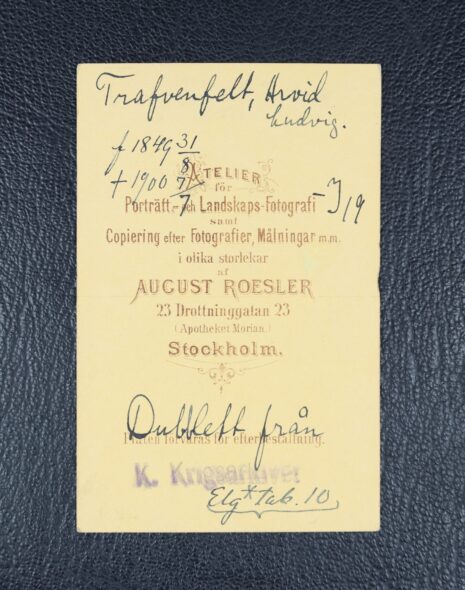 Trafvenfelt, Arvid
Ludvig.
f 1849 31/8
† 1900 7/7
ATELIER
för
Porträtt- och Landskaps-Fotografi
samt
Copiering efter Fotografier, Målningar m.m.
i olika storlekar
af
AUGUST ROESLER
23 Drottninggatan 23
(Apotheket Morian.)
Stockholm.
Dubblett från
Platen förvaras för efterbeställning.
K. Krigsarkivet
tab. 10.